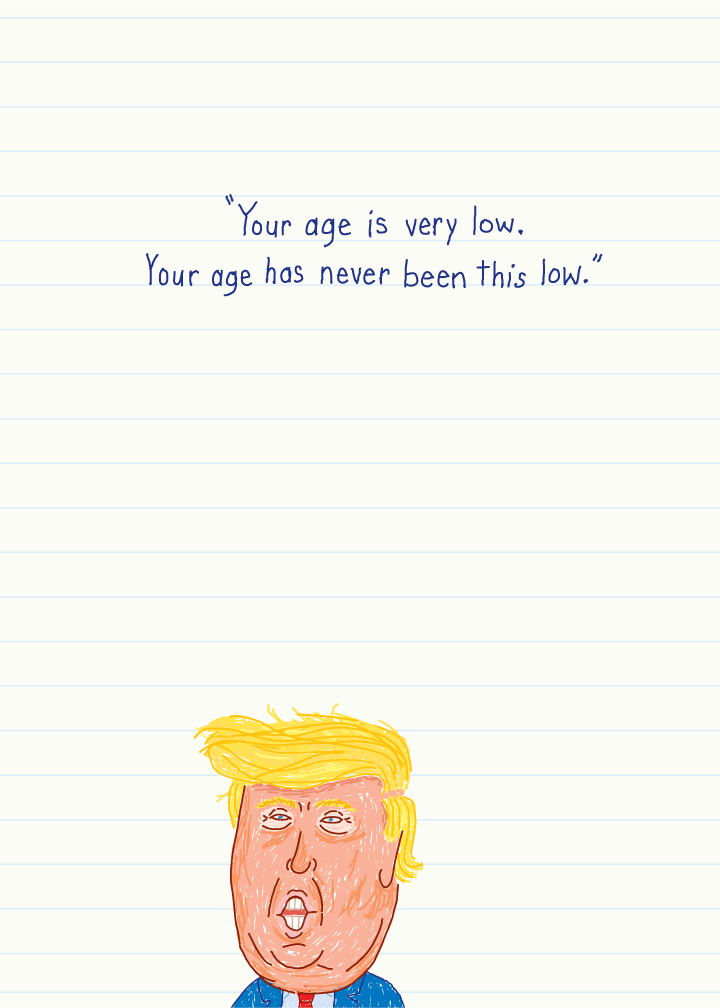 "Your age is very low.
Your age has never been this low."